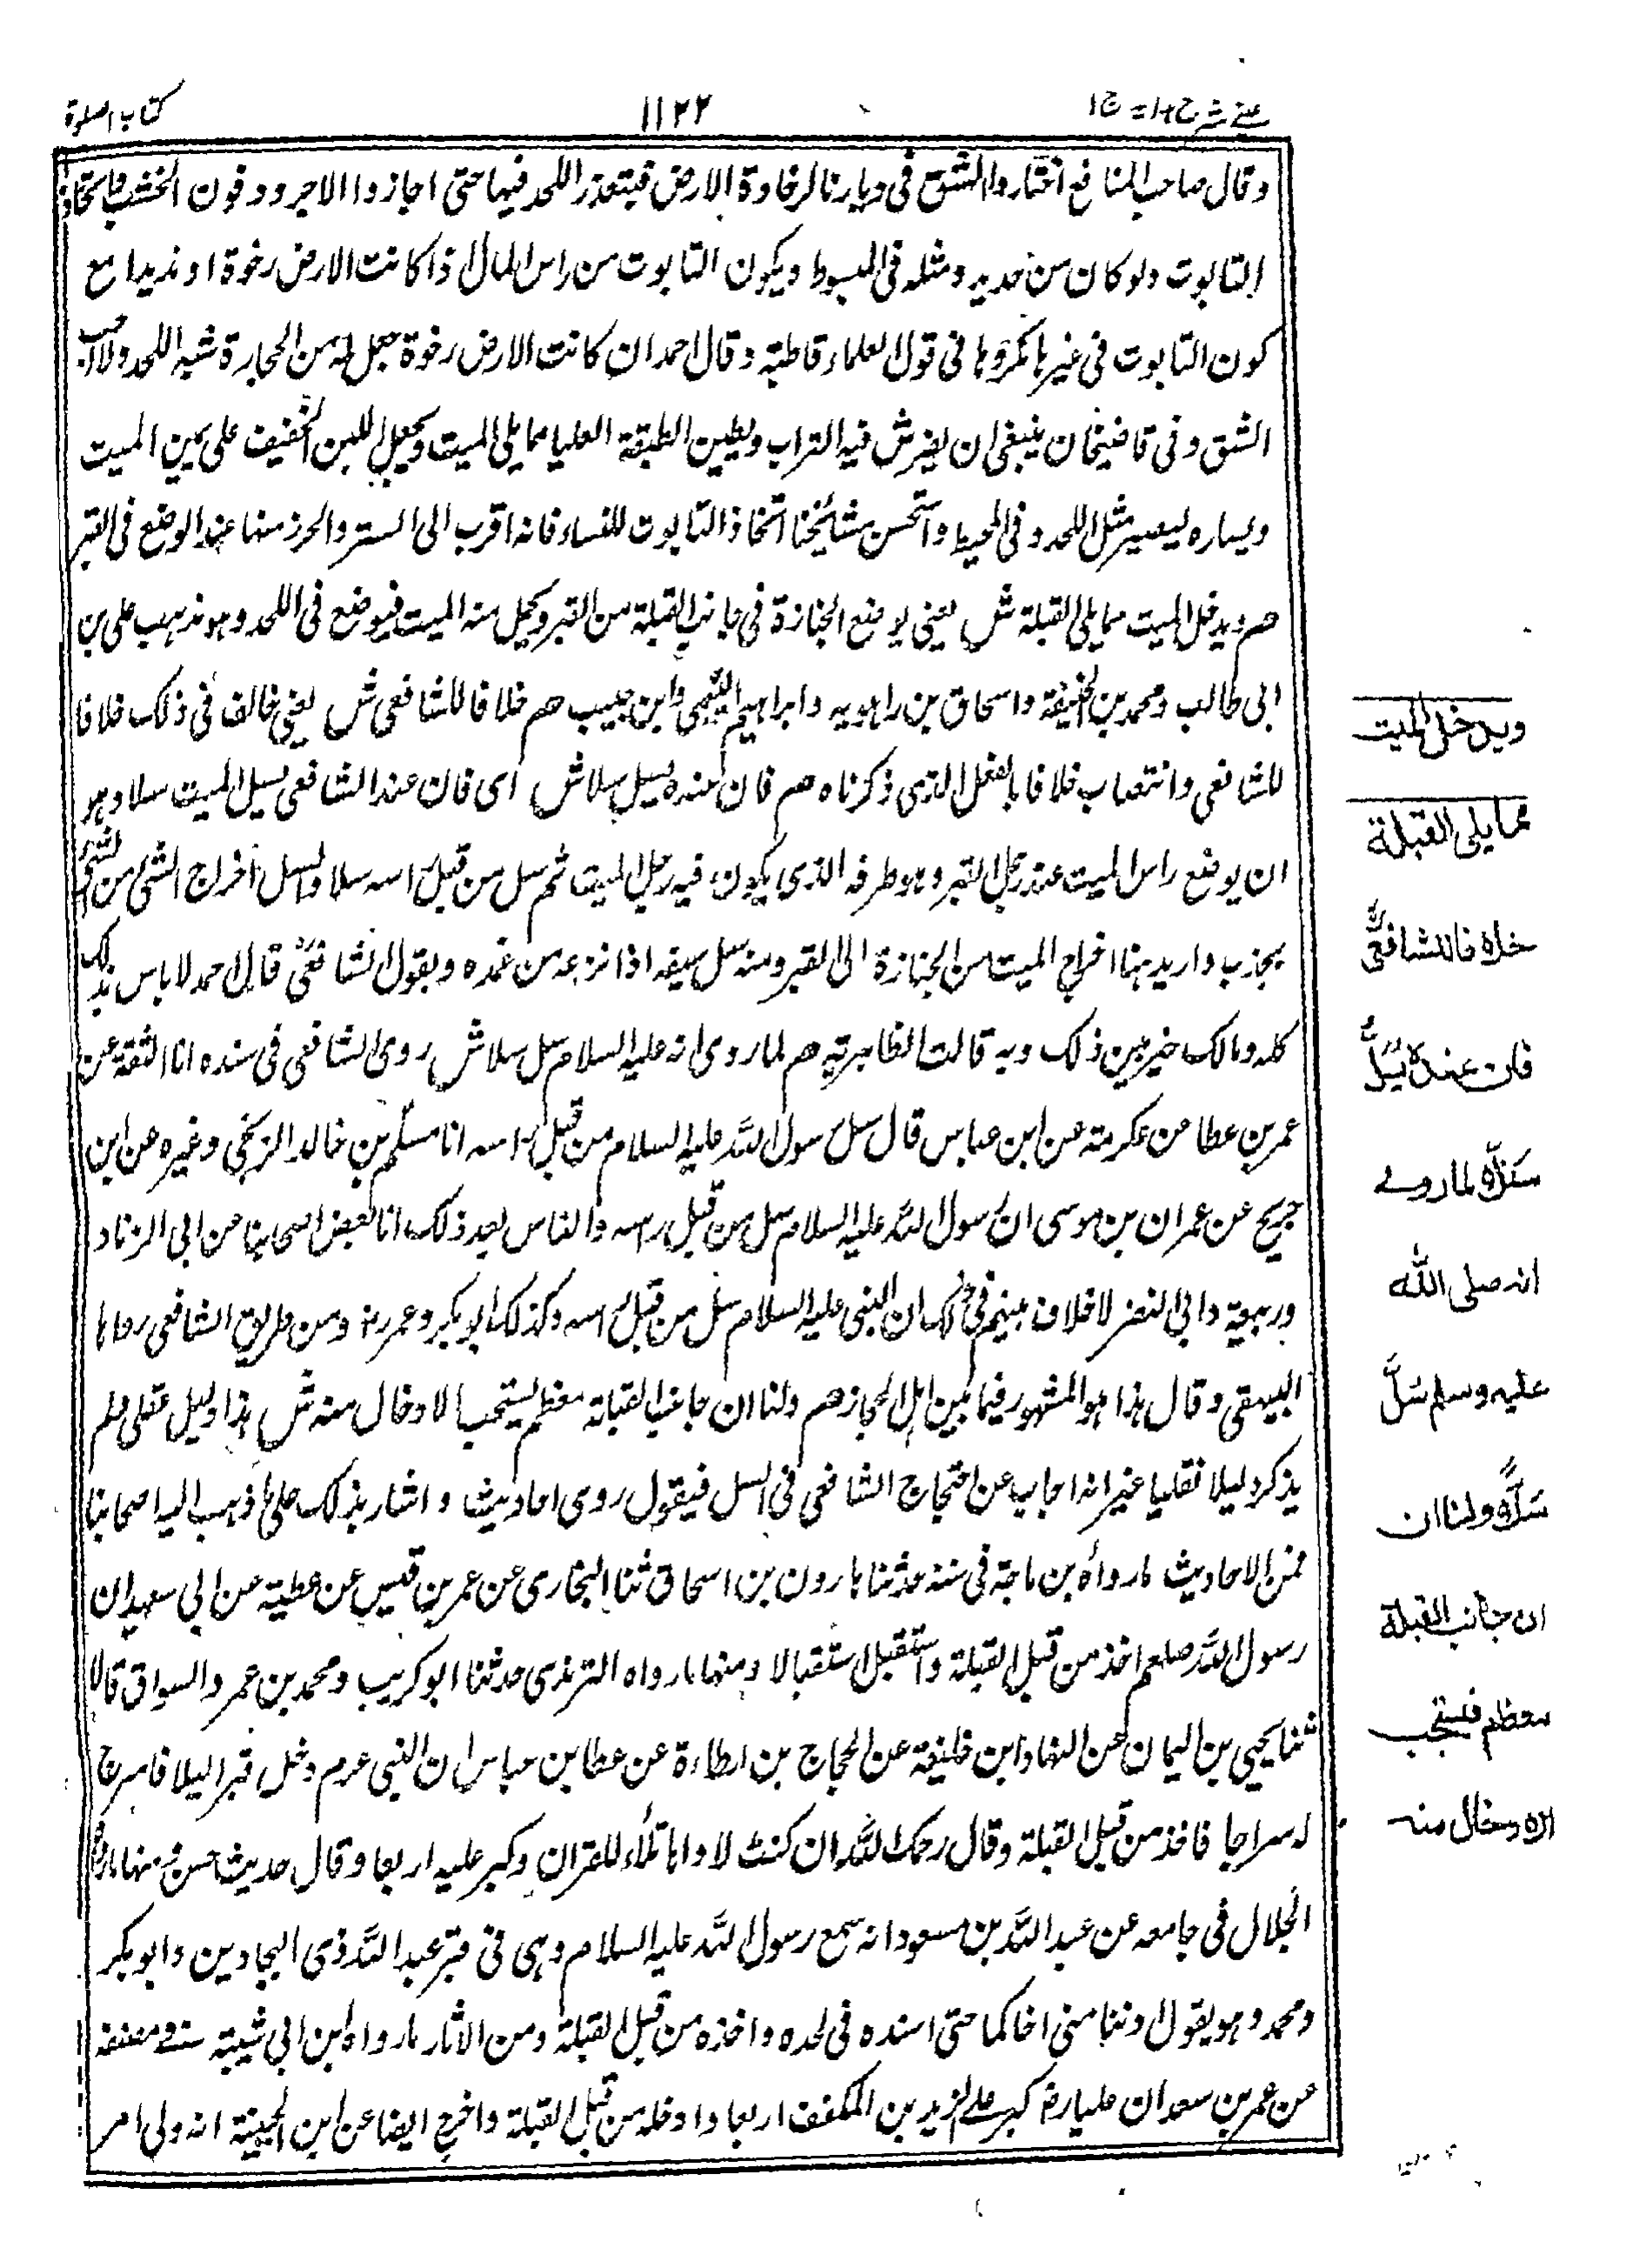 عینے شرح ہدایہ ج ۱
۱۱۲۲
کتاب الصلوة
وقال صاحب المنافع اختاروا الشق فی دیارنا لرخاوة الارض فیتعذر اللحد فیها حتی اجازوا الاجر ودفون الخشب واتخاذ
التابوت ولو کان من حدید ومثله فی المبسوط ویکون التابوت من راس المال اذا کانت الارض رخوة او ندیدا مع
کون التابوت فی غیرها مکروها فی قول العلماء قاطبة وقال احمد ان کانت الارض رخوة جعل له من الحجارة شبه اللحد ولا احب
الشق وفی قاضیخان ینبغی ان یفرش فیه التراب ویطین الطبقة العلیا مما یلی المیت ویجعل اللبن الخفیف علی یمین المیت
ویساره لیصیر مثل اللحد وفی المحیط واستحسن مشائخنا اتخاذ التابوت للنساء فانه اقرب الی الستر والحرز منها عند الوضع فی القبر
هم ویدخل المیت مما یلی القبلة ش یعنی یوضع الجنازة فی جانب القبلة من القبر ویحمل منه المیت فیوضع فی اللحد وهو مذهب علی بن
ابی طالب ومحمد بن الحنیفة واسحاق بن راهویه وابراهیم التیمی وابن حبیب هم خلافا للشافعی ش یعنی خالف فی ذلک خلافا
للشافعی وانتصاب خلافا بالفعل الذی ذکرناه هم فان عنده یسل سلا ش ای فان عند الشافعی یسل المیت سلا وهو
ان یوضع راس المیت عند رجل القبر وهو طرفه الذی یکون فیه رجل المیت ثم سل من قبل راسه سلا والسل اخراج الشئ من الشئ
بجذب وارید هنا اخراج المیت من الجنازة الی القبر ومنه سل سیفه اذا نزعه من غمده وبقول الشافعیؒ قال احمد لا باس بذلک
کله ومالک خیر بین ذلک وبه قالت الظاهریة هم لما روی انه علیه السلام سل سلا ش روی الشافعی فی سنده انا الثقة عن
عمر بن عطا عن عکرمة عن ابن عباس قال سل رسول الله علیه السلام من قبل راسه انا مسلم بن خالد الزنجی وغیره عن ابن
جریج عن عمران بن موسی ان رسول الله علیه السلام سل من قبل راسه والناس بعد ذلک انا بعض اصحابنا عن ابی الزناد
وربیعة وابی النضر لا خلاف بینهم فی ذلک ان النبی علیه السلام سل من قبل راسه وکذلک ابو بکر وعمر رض ومن طریق الشافعی رواها
البیهقی وقال هذا هو المشهور فیما بین اهل الحجاز هم ولنا ان جانب القبلة معظم یستحب الادخال منه ش هذا دلیل عقلی فلم
یذکر دلیلا نقلیا غیر انه اجاب عن احتجاج الشافعی فی السل فیقول روی احادیث واشار بذلک علی ما ذهب الیه اصحابنا
فمن الاحادیث ما رواه بن ماجة فی سننه حدثنا هارون بن اسحاق ثنا البخاری عن عمر بن قیس عن عطیة عن ابی سعید ان
رسول الله صلعم اخذ من قبل القبلة واستقبل استقبالا ومنها ما رواه الترمذی حدثنا ابو کریب ومحمد بن عمر والسواق قالا
ثنا یحیی بن الیمان عن المنهاد ابن خلیفة عن الحجاج بن ارطاءة عن عطا بن عباس ان النبی عرم دخل قبرا لیلا فاسرج
له سراجا فاخذ من قبل القبلة وقال رحمک الله ان کنت لاواها تلاء للقران وکبر علیه اربعا وقال حدیث حسن ومنها مارواه
الخلال فی جامعه عن عبد الله بن مسعود انه سمع رسول الله علیه السلام وهی فی قبر عبد الله ذی البجادین وابو بکر
ومحمد وهو یقول ادنیا منی اخاکما حتی اسنده فی لحده واخذه من قبل القبلة ومن الاثار ما رواه ابن ابی شیبة فے مصنفه
عن عمر بن سعد ان علیا رض کبر علی یزید بن المکفف اربعا وادخله من قبل القبلة واخرج ایضا عن ابن الحنیفة انه ولی امر
ویدخل المیت
مما یلی القبلة
خلافا للشافعیؒ
فان عندہ یسلُّ
سَلاًّ لما روے
انہ صلی اللہ
علیہ وسلم سُلَّ
سَلاًّ ولنا ان
ان جانب القبلة
معظم فیستحب
الادخال منہ